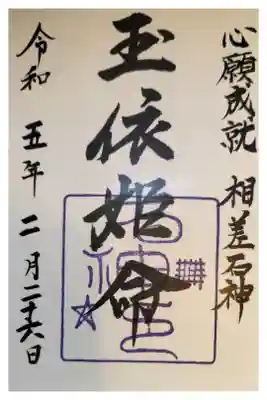 心願成就 相差石神
玉依姫命
令和五年二月二十六日